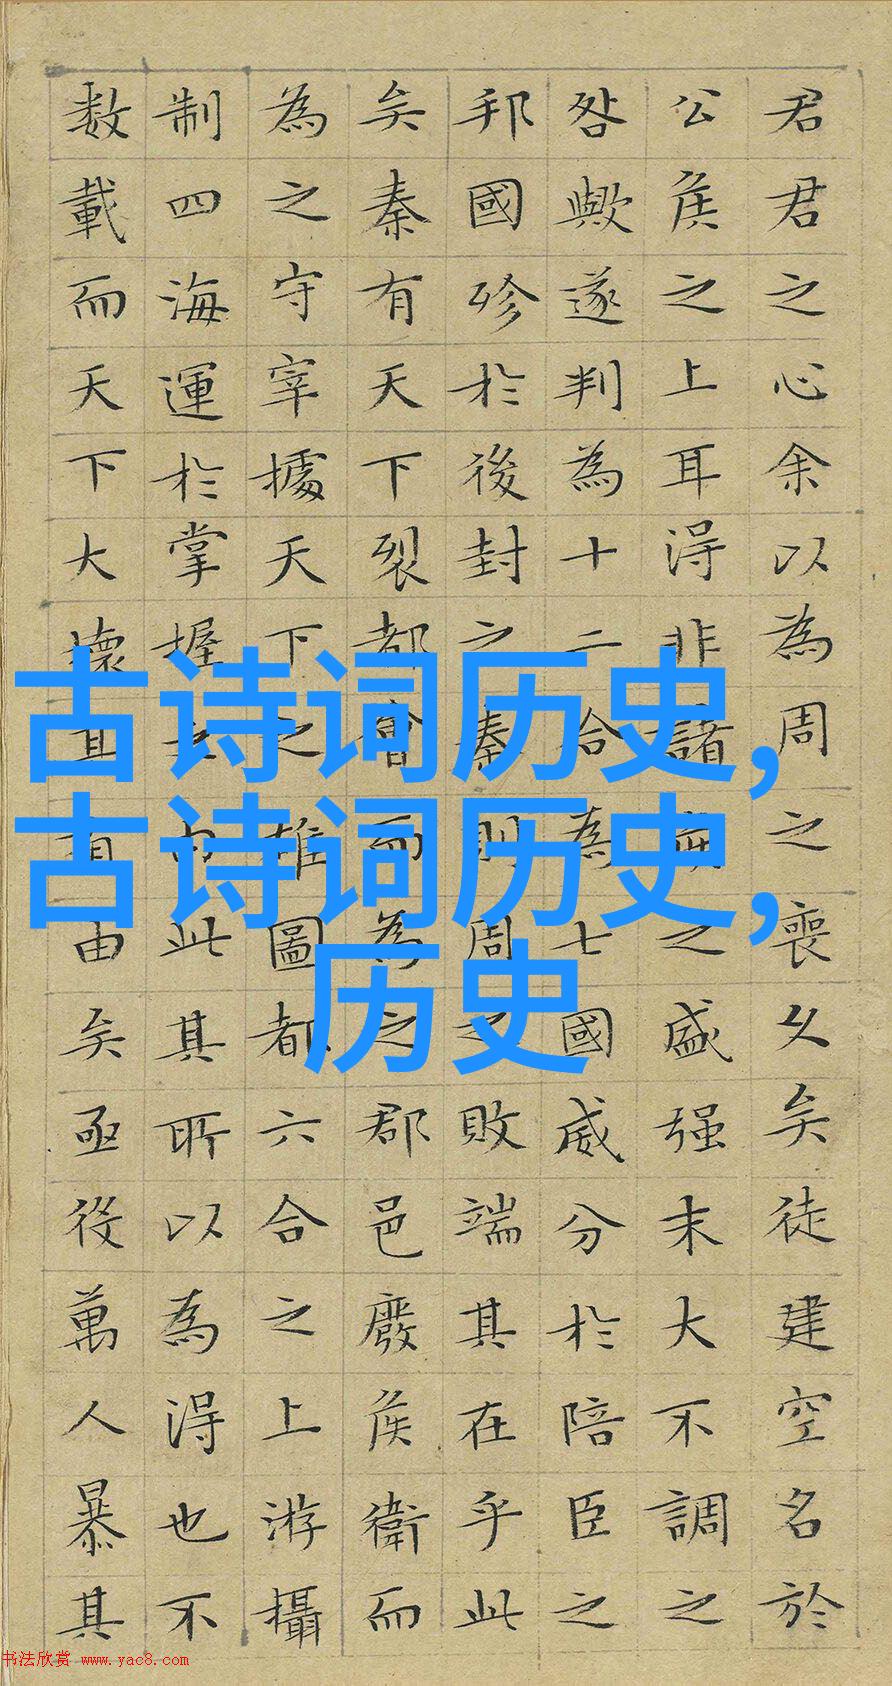 君君之心余以為周之喪久矣徒建空名於
公侯之上耳得非諸侯之盛强末大不調之
咎歟遂判為十二合為七國威分於陪臣之
邦國殄於後封之秦則周之敗端其在乎此
矣秦有天下裂都會而為之郡邑廢侯衛而
為之守宰據天下之雄圖都六合之上游攝
制四海運於掌握之內此其所以為得也不
数載而天下大壞其有由矣亟役萬人暴其
古诗词历史,
古诗词历史,
历史
书法欣赏 www.yac8.com